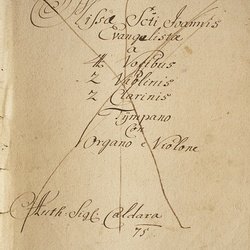 Missa Scti Joannis
Evangelistæ
a
4 Vocibus
2 Violinis
2 Clarinis
Tÿmpano
Con
Organo e Violone
Auth: Sig: Caldara
75